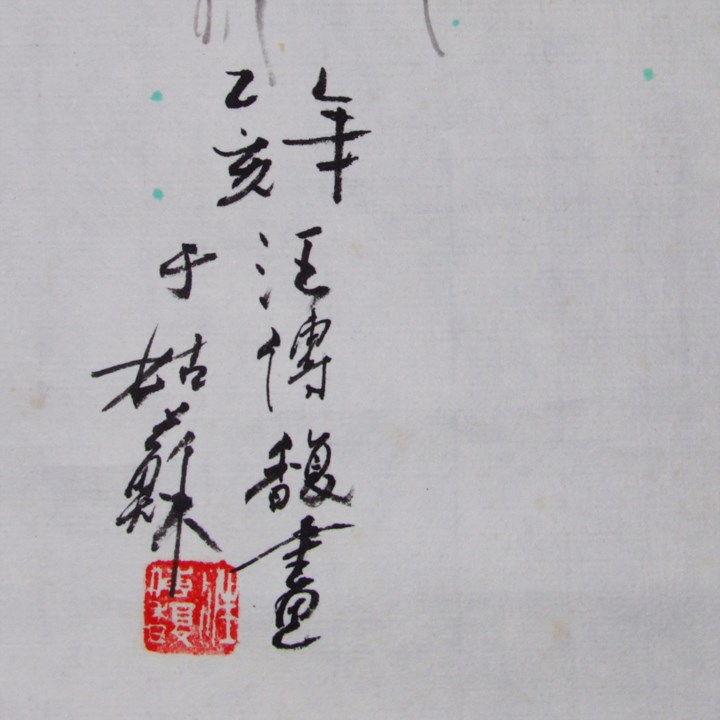 年汪傳馥畫
乙亥于姑蘇
汪
傳馥